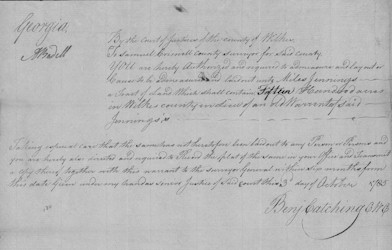 Georgia.
By the Court of Justices of the county of Wilkes
To Samuel Creswell County Surveyor for said county
You are hereby Authorized and required to Admeasure and lay out or
Cause to be Admeasured and laid out unto Miles Jennings
a Tract of Land Which shall contain Fifteen Hundred acres
in Wilkes county in lieu of an old Warrant of said
Jennings
Taking especial care that the same has not heretofore been laid out to any Person or Persons and
you are hereby also directed and required to Record the plat of the same in your Office and transmit
a Copy thereof together with this warrant to the surveyor General within six months from
this date Given under my hand as senior Justice of said court this 3 day of October 1785
Benj Catching